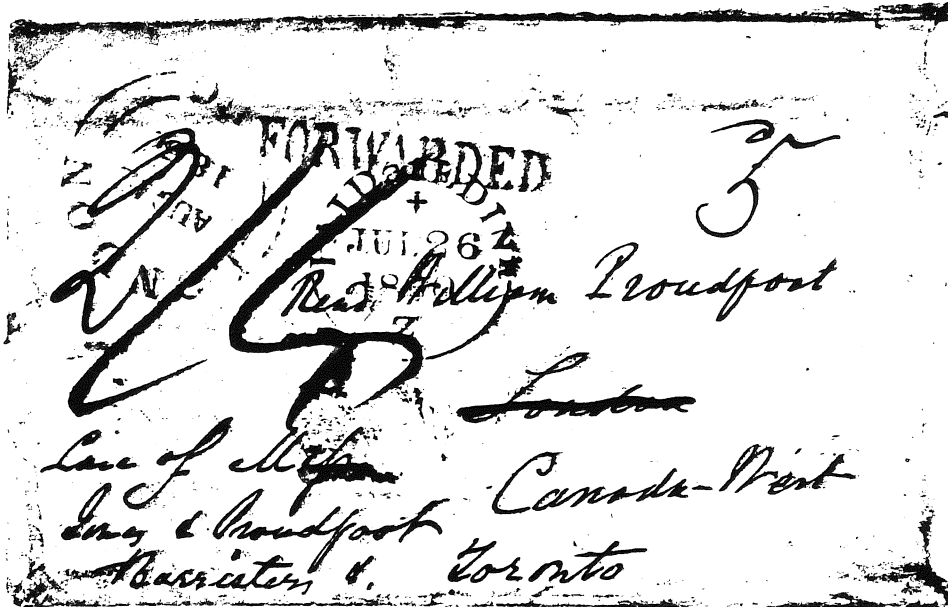 FORWARDED
5
JUL 26
Revd William Proudfoot
London
Care of Messrs
Jones & Proudfoot
Canada-West
Barristers &. Toronto